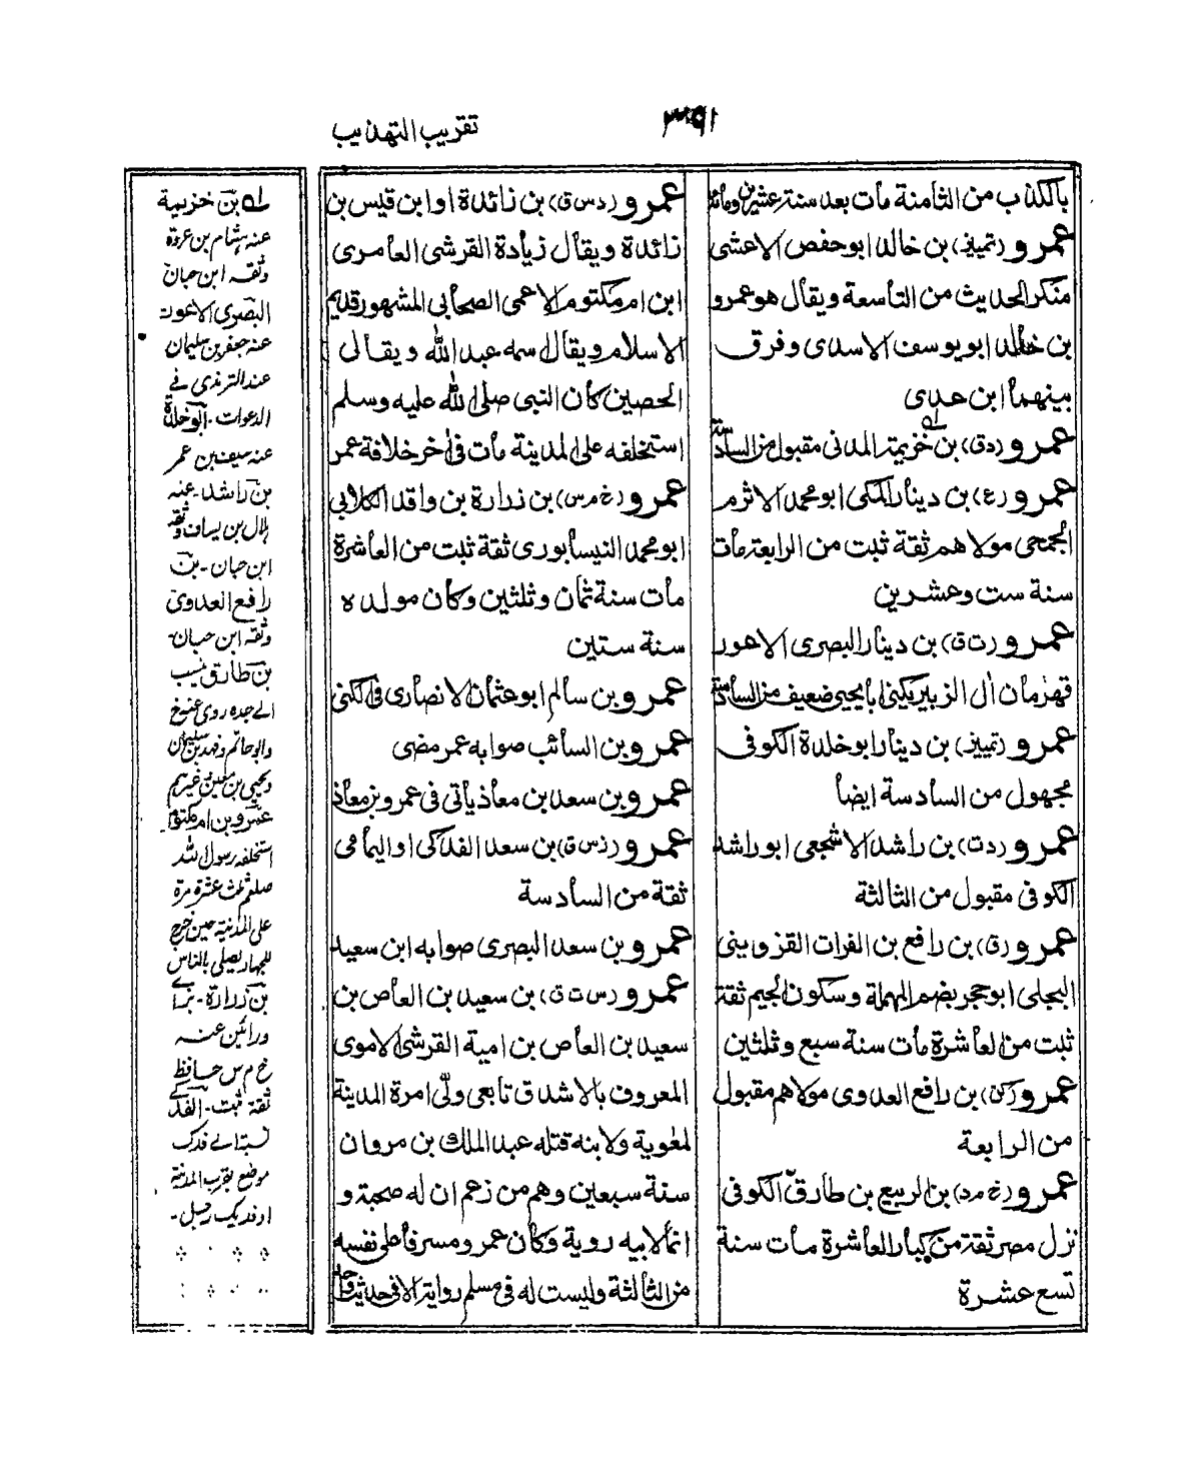 تقريب التهذيب
٣٩١
بالكذب من الثامنة مات بعد سنة عشرين ومائة
عمرو (تمييز) بن خالد ابو حفص الاعشى
منكر الحديث من التاسعة ويقال هو عمرو
بن خالد ابو يوسف الاسدى وفرق
بينهما ابن عدى
عمرو (دق) بن خزيمة المدنى مقبول من السادسة
عمرو (ع) بن دينار المكى ابو محمد الاثرم
الجمحى مولاهم ثقة ثبت من الرابعة مات
سنة ست وعشرين
عمرو (ت ق) بن دينار البصرى الاعور
قهرمان أل الزبير يكنى ابا يحيى ضعيف من السادسة
عمرو (تمييز) بن دينار ابو خلدة الكوفى
مجهول من السادسة ايضا
عمرو (دت) بن راشد الاشجعى ابو راشد
الكوفى مقبول من الثالثة
عمرو (ق) بن رافع بن الفرات القزوينى
البجلى ابو حجر بضم المهملة وسكون الجيم ثقة
ثبت من العاشرة مات سنة سبع وثلثين
عمرو (كن) بن رافع العدوى مولاهم مقبول
من الرابعة
عمرو (خ مد) بن الربيع بن طارق الكوفى
نزل مصر ثقة من كبار العاشرة مات سنة
تسع عشرة
عمرو (دس ق) بن زائدة او ابن قيس بن
زائدة ويقال زيادة القرشى العامرى
ابن ام مكتوم الاعمى الصحابى المشهور قديم
الاسلام ويقال سمه عبد الله ويقال
الحصين كان النبى صلى الله عليه وسلم
استخلفه على المدينة مات فى أخر خلافة عمر
عمرو (خ م س) بن زرارة بن واقد الكلابى
ابو محمد النيسابورى ثقة ثبت من العاشرة
مات سنة ثمان وثلثين وكان مولده
سنة ستين
عمرو بن سالم ابو عثمان الانصارى فى الكنى
عمرو بن السائب صوابه عمر مضى
عمرو بن سعد بن معاذ ياتى فى عمرو بن معاذ
عمرو (زس ق) بن سعد الفدكى او اليمامى
ثقة من السادسة
عمرو بن سعد البصرى صوابه ابن سعيد
عمرو (س ت ق) بن سعيد بن العاص بن
سعيد بن العاص بن امية القرشى الاموى
المعروف بالاشدق تابعى ولّى امرة المدينة
لمعوية ولابنه قتله عبد الملك بن مروان
سنة سبعين وهم من زعم ان له صحبة و
انما لابيه روية وكان عمرو مسرفا على نفسه
من الثالثة وليست له فى مسلم رواية الا فى حديث واحد
له بن خزيمة
عنه هشام بن عروة
وثقه ابن حبان
البصرى الاعور
عنه جعفر بن سليمان
عند الترمذى فے
الدعوات - ابو خلدة
عنه سيف بن عمر
بن راشد - عنه
هلال بن يساف وثقه
ابن حبان - بن
رافع العدوى
وثقه ابن حبان -
بن طارق نسب
الے جده روى عنه خ
وابو حاتم
ويحيى بن معين وغيرهم
عمرو بن ام مكتوم
استخلفه رسول الله
صلعم ثلث عشرة مرة
على المدينة حين خرج
للجهاد يصلى بالناس
بن زرارة -
ورائين عنه
خ م س حافظ
ثقة ثبت - الفدكے
نسبة الے فدك
موضع بقرب المدينة